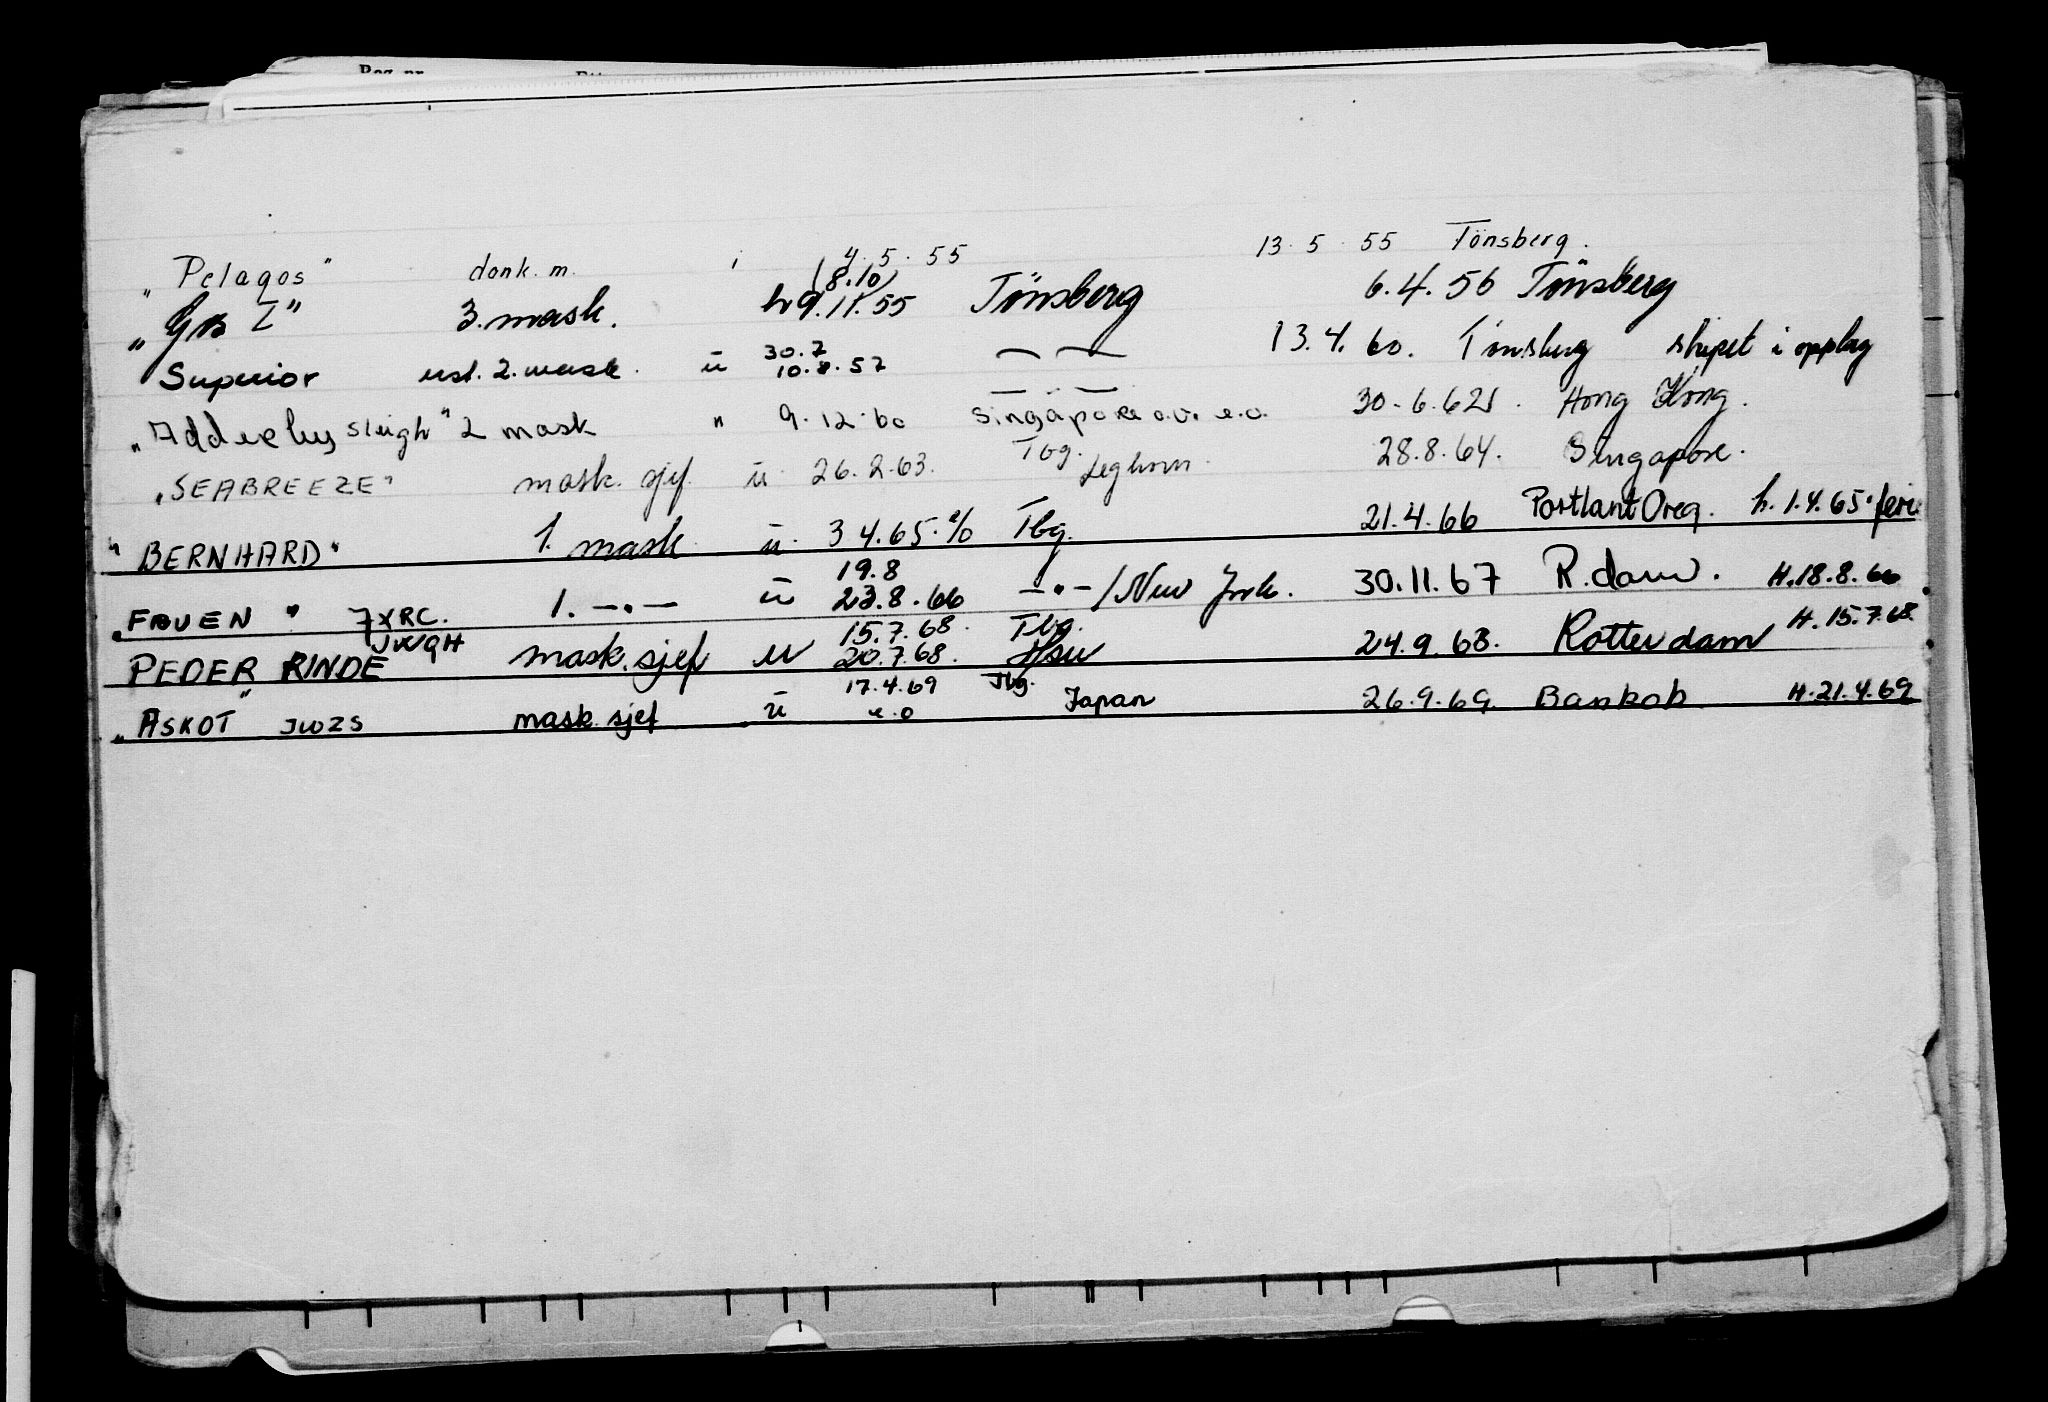 "Pelagos" donk. m. i 4.5.55 13.5.55 Tönsberg.
(8.10)
"Gos I" 3. mask. h 9.11.55 Tönsberg 6.4.56 Tönsberg
30.7
Superior ust. 2. mask. u 10.8.57 — — 13.4.60. Tönsberg skipet i opplag
— . —
"Adderley sleigh" 2 mask " 9.12.60 Singapore o.v. e.o. 30.6.62 Hong Kong.
Tbg.
"SEABREEZE" mask. sjef. u 26.2.63. Leghorn. 28.8.64. Singapore.
"BERNHARD" 1. mask u. 3 4.65. % Tbg. 21.4.66 Portlant Oreg. h. 1.4.65. feri
19.8
"FAUEN" 7XRC. 1. —.— u 23.8.66 —.—/New York. 30.11.67 R.dam. H.18.8.66
JWQH 15.7.68. Tbg.
PEDER RINDE mask. sjef u 20.7.68. Hsu 24.9.68. Rotterdam H.15.7.68.
17.4.69 Tbg.
"ASKOT" JWZS mask sjef u e.o Japan 26.9.69 Bankok. H.21.4.69